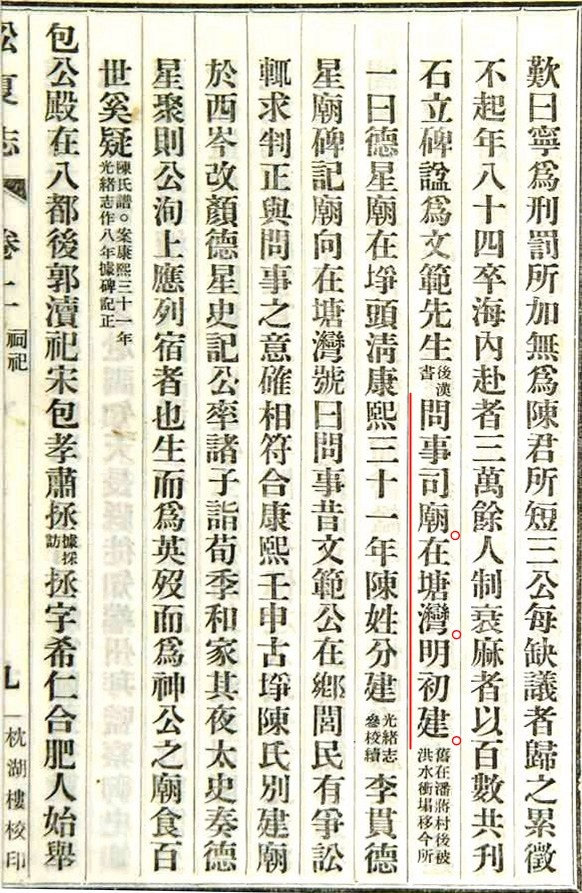 歎曰寧爲刑罰所加無爲陳君所短三公每缺議者歸之累徵
不起年八十四卒海內赴者三萬餘人制衰麻者以百數共刋
石立碑諡爲文範先生後漢書問事司廟在塘灣明初建舊在潘蔣村後被洪水衝塌移今所
一曰德星廟在埩頭淸康熙三十一年陳姓分建光緖志叅稜續李貫德
星廟碑記廟向在塘灣號曰問事昔文範公在鄉閭民有爭訟
輒求判正與問事之意確相符合康熙壬申古埩陳氏別建廟
於西岑改顏德星史記公率諸子詣荀季和家其夜太史奏德
星聚則公洵上應列宿者也生而爲英歿而爲神公之廟食百
世奚疑陳氏譜○案康熙三十一年光緖志作八年據碑記正
包公殿在八都後郭瀆祀宋包孝肅拯據採訪拯字希仁合肥人始舉
松夏志 卷二 祠祀 九 枕湖樓校印